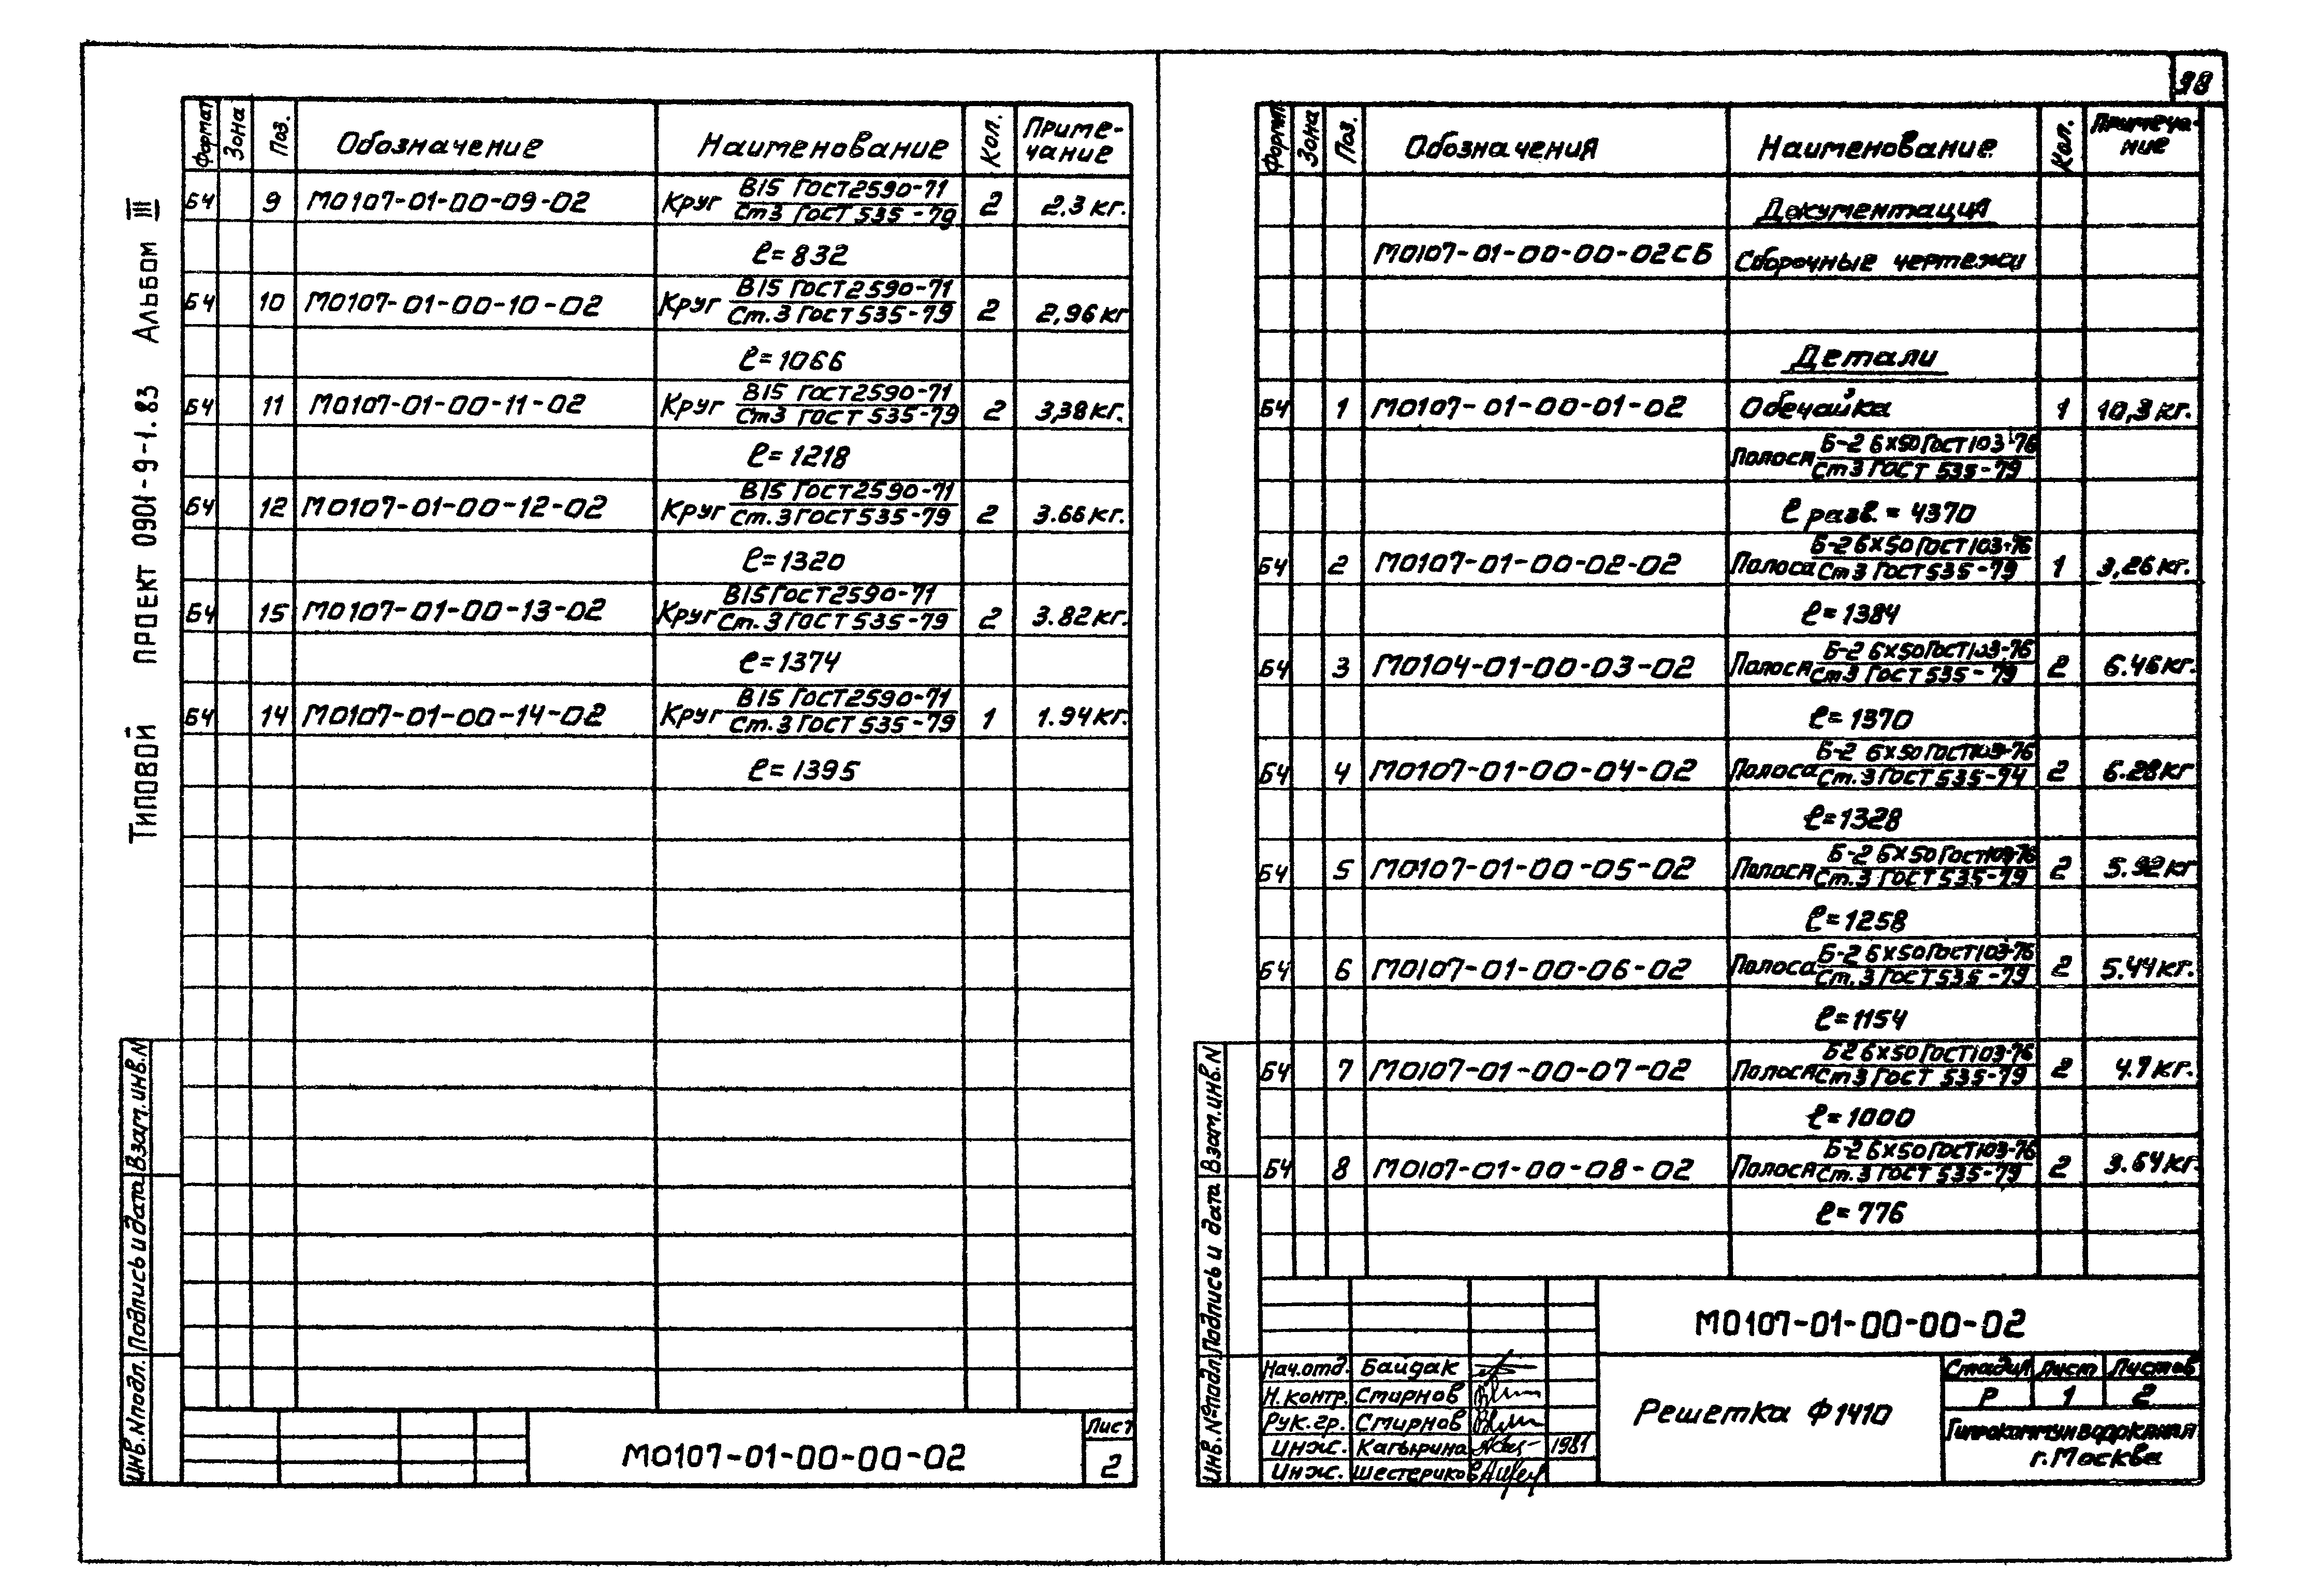 98
Типовой проект 0901-9-1.83 Альбом III
Формат Зона Поз. Обозначение Наименование Кол. Примечание
Б4 9 М0107-01-00-09-02 Круг В15 ГОСТ 2590-71 / Ст3 ГОСТ 535-79 2 2,3 кг.
ℓ=832
Б4 10 М0107-01-00-10-02 Круг В15 ГОСТ 2590-71 / Ст.3 ГОСТ 535-79 2 2,96 кг
ℓ=1066
Б4 11 М0107-01-00-11-02 Круг В15 ГОСТ 2590-71 / Ст3 ГОСТ 535-79 2 3,38 кг.
ℓ=1218
Б4 12 М0107-01-00-12-02 Круг В15 ГОСТ 2590-71 / Ст.3 ГОСТ 535-79 2 3.66 кг.
ℓ=1320
Б4 15 М0107-01-00-13-02 Круг В15 ГОСТ 2590-71 / Ст.3 ГОСТ 535-79 2 3.82 кг.
ℓ=1374
Б4 14 М0107-01-00-14-02 Круг В15 ГОСТ 2590-71 / Ст.3 ГОСТ 535-79 1 1.94 кг.
ℓ=1395
Инв.N подл. Подпись и дата Взам.инв.N
М0107-01-00-00-02
Лист
2
Формат Зона Поз. Обозначения Наименование Кол. Примечание
Документация
М0107-01-00-00-02СБ Сборочные чертежи
Детали
Б4 1 М0107-01-00-01-02 Обечайка 1 10,3 кг.
Полоса Б-2 6х50 ГОСТ 103-76 / Ст3 ГОСТ 535-79
ℓ разв. = 4370
Б4 2 М0107-01-00-02-02 Полоса Б-2 6х50 ГОСТ 103-76 / Ст3 ГОСТ 535-79 1 3,26 кг.
ℓ=1384
Б4 3 М0104-01-00-03-02 Полоса Б-2 6х50 ГОСТ 103-76 / Ст3 ГОСТ 535-79 2 6.46 кг.
ℓ=1370
Б4 4 М0107-01-00-04-02 Полоса Б-2 6х50 ГОСТ 103-76 / Ст.3 ГОСТ 535-74 2 6.28 кг
ℓ=1328
Б4 5 М0107-01-00-05-02 Полоса Б-2 6х50 ГОСТ 103-76 / Ст.3 ГОСТ 535-79 2 5.92 кг
ℓ=1258
Б4 6 М0107-01-00-06-02 Полоса Б-2 6х50 ГОСТ 103-76 / Ст.3 ГОСТ 535-79 2 5.44 кг.
ℓ=1154
Б4 7 М0107-01-00-07-02 Полоса Б2 6х50 ГОСТ 103-76 / Ст3 ГОСТ 535-79 2 4.7 кг.
ℓ=1000
Б4 8 М0107-01-00-08-02 Полоса Б-2 6х50 ГОСТ 103-76 / Ст.3 ГОСТ 535-79 2 3.64 кг.
ℓ=776
Инв.№ подл. Подпись и дата Взам.инв.N
М0107-01-00-00-02
Нач.отд. Байдак
Н.контр. Смирнов
Рук.гр. Смирнов
Инж. Кагырина 1981
Инж. Шестериков
Решетка Ф1410
Стадия Лист Листов
Р 1 2
Гипрокоммунводоканал
г.Москва